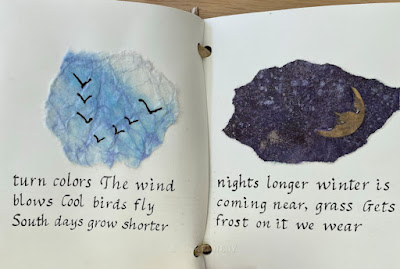 turn colors The wind
blows Cool birds fly
South days grow shorter
nights longer winter is
coming near, grass Gets
frost on it we wear